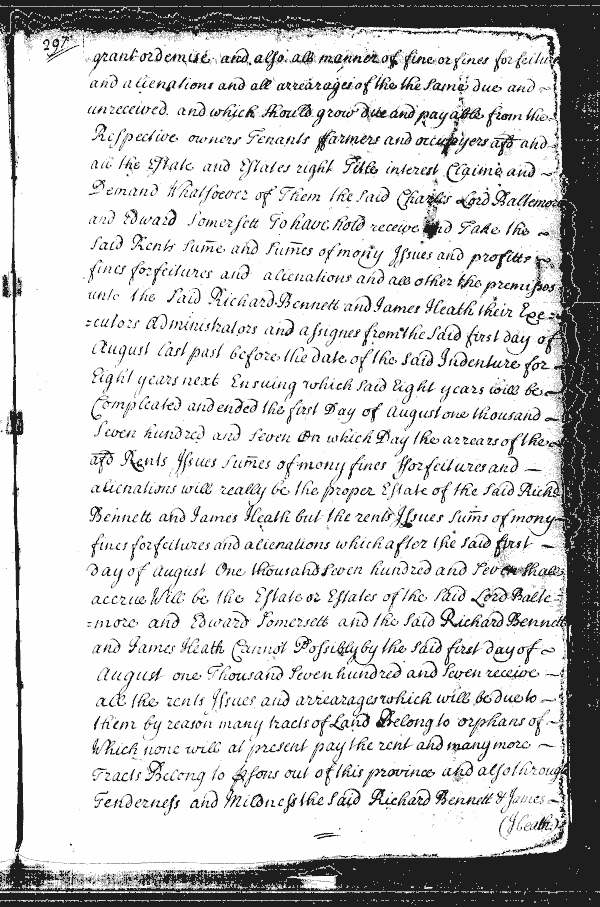 297
grant or demise and also all manner of fine or fines forfeitur
and alienations and all arrearages of the the same due and ~
unreceived. and which should grow due and payable from the ~
Respective owners Tenants ffarmers and occupyers afd and
all the Estate and Estates right Title interest Claime and ~
Demand Whatsoever of Them the said Charles Lord Baltemore
and Edward Somersett To have hold receive and Take the ~
Said Rents Sum̄e and Sum̄es of mony Issues and profitts ~
fines forfeitures and alienations and all other the premisses
unto the Said Richard Bennett and James Heath their Exe=
=cutors Administrators and assignes from the Said first day of
August Last past before the date of the Said Indenture for ~
Eight years next Ensuing which Said Eight years will be ~
Compleated and ended the first Day of August one thousand ~
Seven hundred and Seven On which Day the arrears of the ~
afd Rents Issues Sum̄es of mony fines fforfeitures and ~
alienations will really be the proper Estate of the Said Richd
Bennett and James Heath but the rents Issues Sum̄s of mony ~
fines forfeitures and alienations which after the Said first ~
day of August One thousand Seven hundred and Seven shall
accrue Will be the Estate or Estates of the Said Lord Balte=
=more and Edward Somersett and the Said Richard Bennett
and James Heath Cannot Possibly by the Said first day of ~
August one Thousand Seven hundred and Seven receive ~
all the rents Issues and arrearages which will be due to ~
them by reason many tracts of Land Belong to orphans of ~
Which none will at present pay the rent and many more ~
Tracts Belong to psons out of this province and also through
Tenderness and Mildness the Said Richard Bennett & James ~
(Heath)